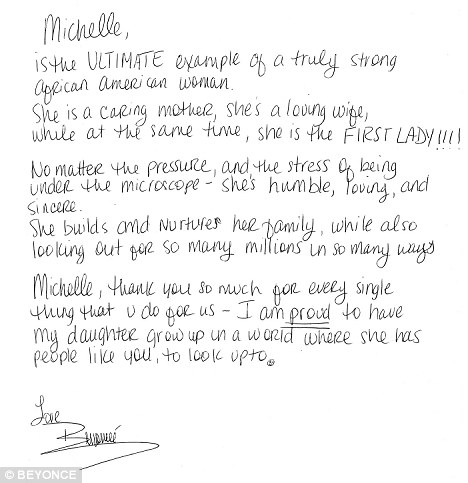 Michelle,
is the ULTIMATE example of a truly strong
african american woman.
She is a caring mother, she's a loving wife,
while at the same time, she is the FIRST LADY!!!!
No matter the pressure, and the stress of being
under the microscope - she's humble, loving, and
sincere.
She builds and nurtures her family, while also
looking out for so many millions in so many ways
Michelle, thank you so much for every single
thing that u do for us - I am proud to have
my daughter grow up in a world where she has
people like you, to look up to.
Love
Beyoncé
© BEYONCE